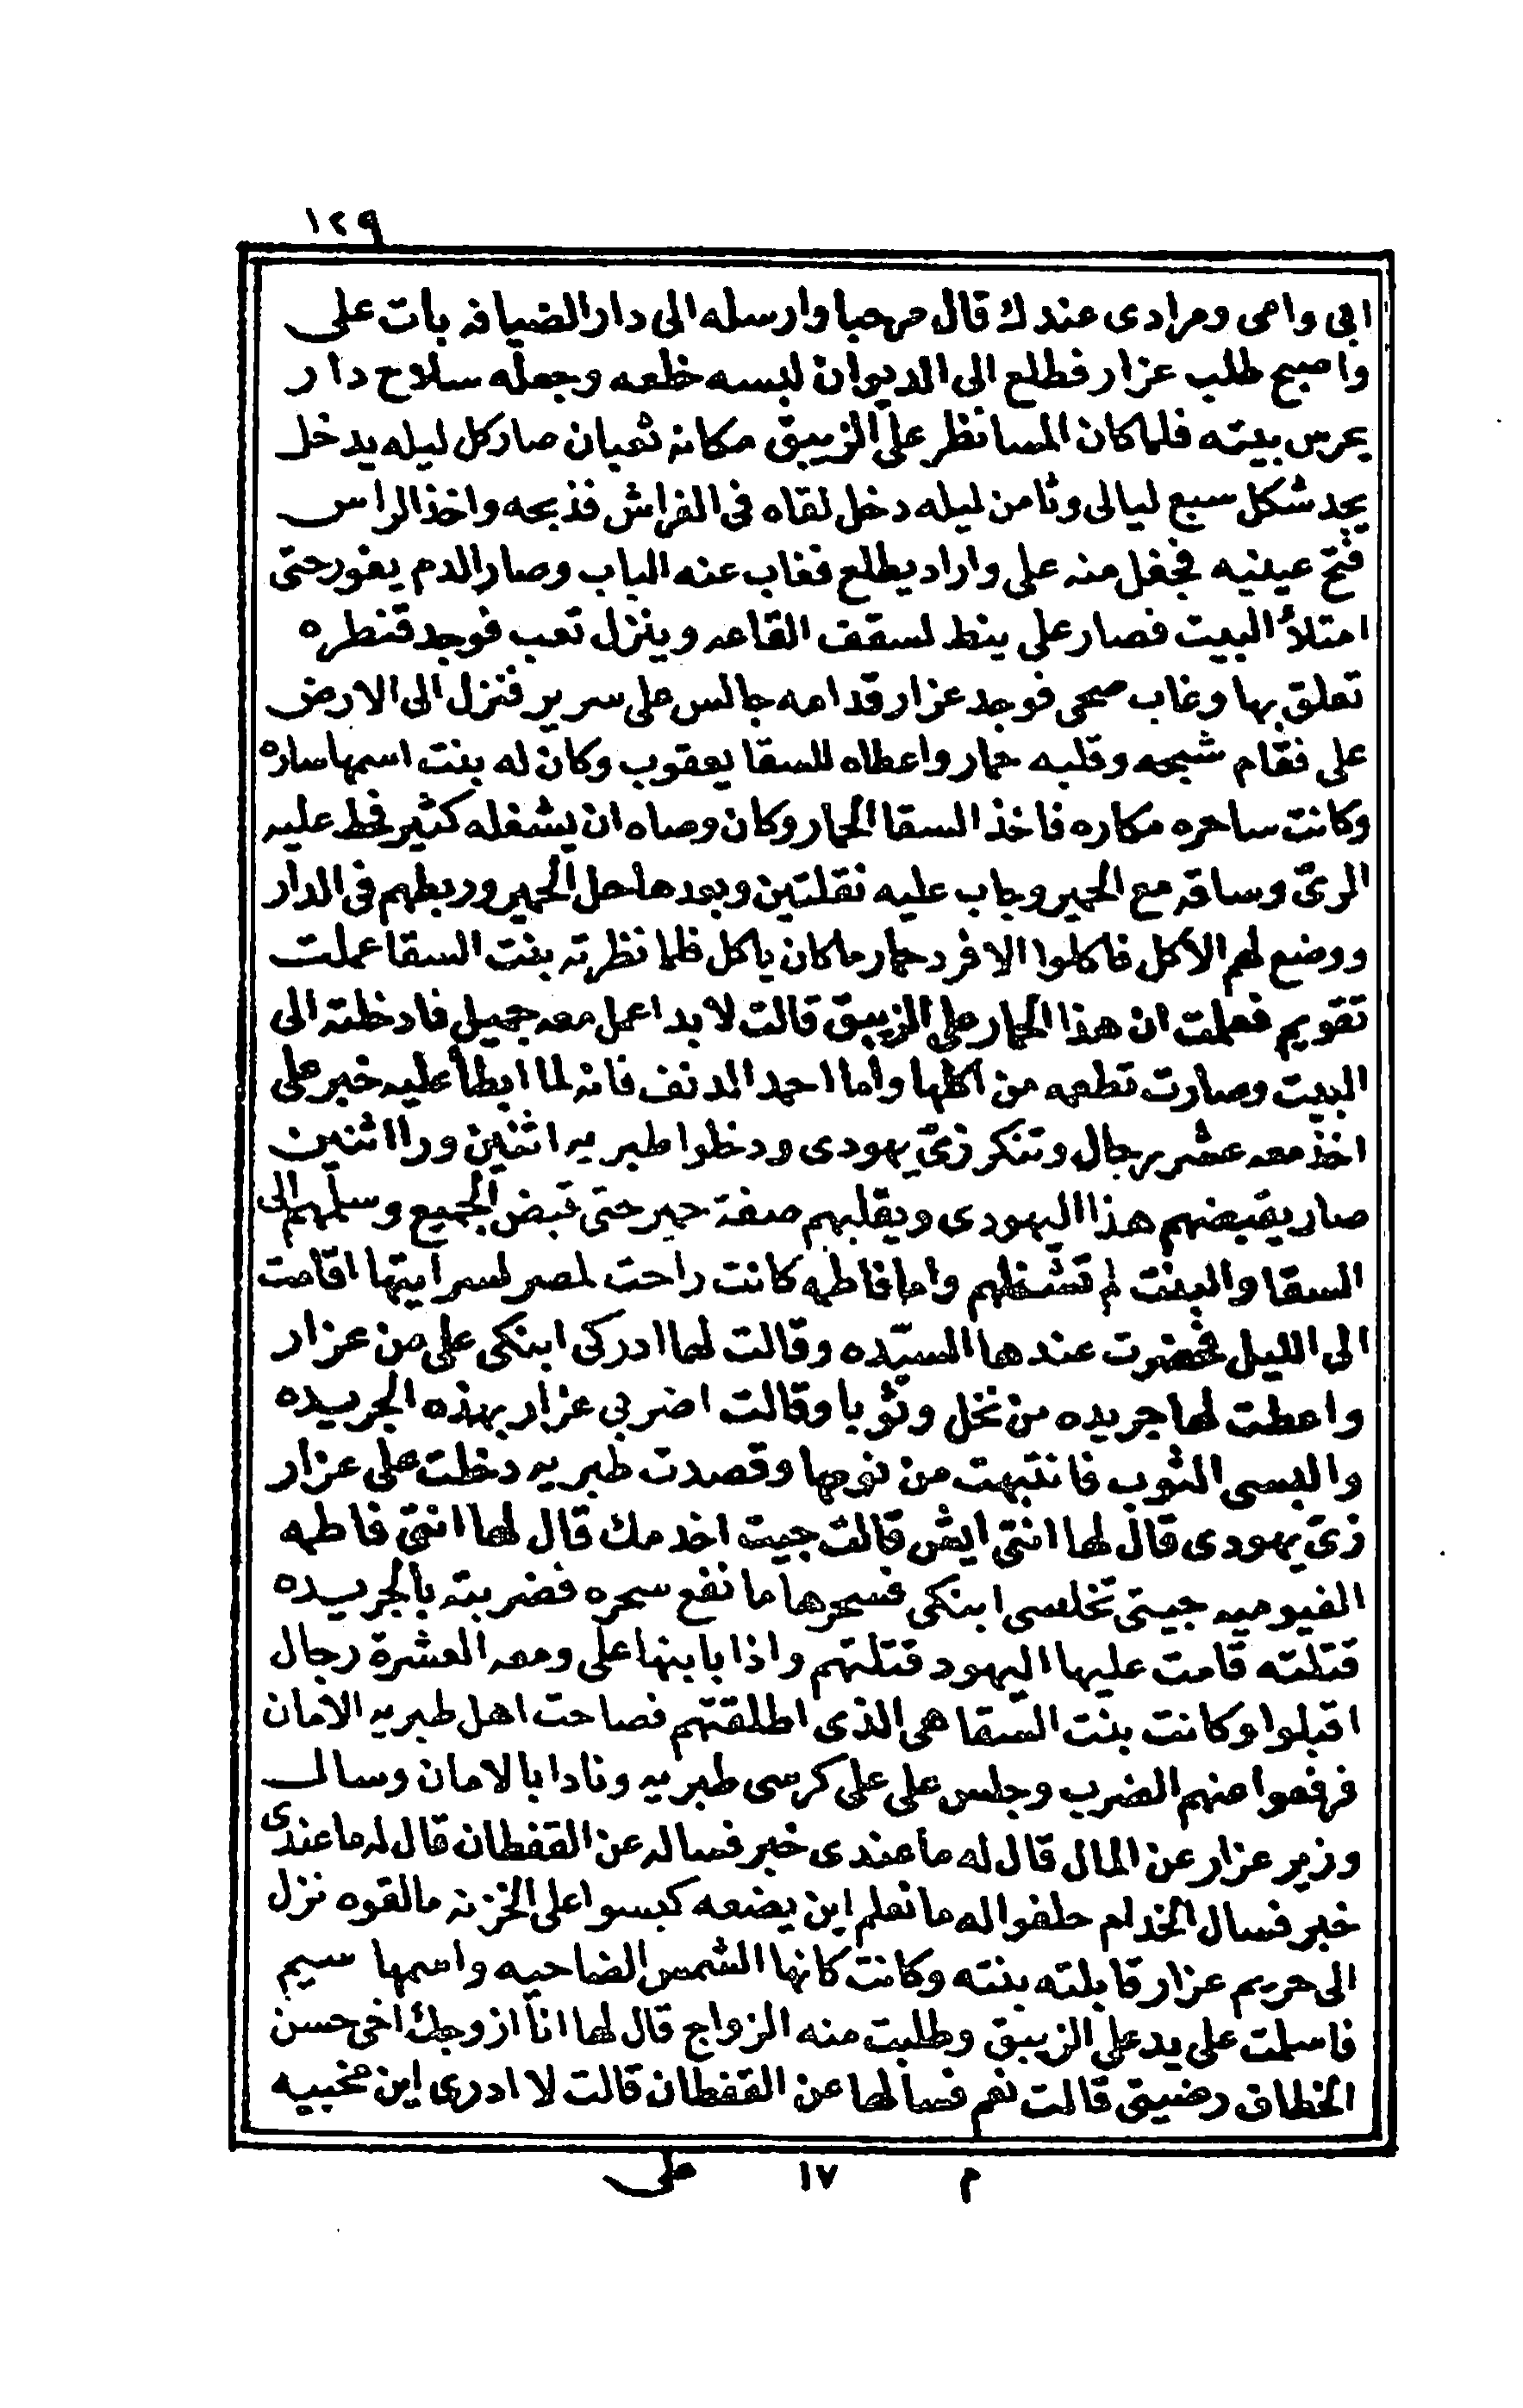 ١٢٩
ابى وامى ومرادى عندك قال مرحبا وارسله الى دار الضيافه بات على
واصبح طلب عزار فطلع الى الديوان لبسه خلعه وجعله سلاح دار
يحرس بيته فلما كان المسا نظر على الزيبق مكانه ثعبان صار كل ليله يدخل
يجد شكل سبع ليالى وثامن ليله دخل لقاه فى الفراش فذبحه واخذ الراس
فتح عينيه فجفل منه على واراد يطلع فغاب عنه الباب وصار الدم يفور حتى
امتلأ البيت فصار على ينط لسقف القاعه وينزل تعب فوجد قنطره
تعلق بها وغاب صحى فوجد عزار قدامه جالس على سرير فنزل الى الارض
على فقام شبحه وقلبه حمار واعطاه للسقا يعقوب وكان له بنت اسمها ساره
وكانت ساحره مكاره فاخذ السقا الحمار وكان وصاه ان يشغله كثير فحط عليه
الرىّ وساقه مع الحمير وجاب عليه نقلتين وبعدها حل الحمير وربطهم فى الدار
ووضع لهم الأكل فاكلوا الا فرد حمار ما كان ياكل فلما نظرته بنت السقا عملت
تقويم فعلمت ان هذا الحمار على الزيبق قالت لا بد اعمل معه جميل فادخلته الى
البيت وصارت تطعمه من اكلها واما احمد الدنف فانه لما ابطأ عليه خبر على
اخذ معه عشر رجال وتنكر زىّ يهودى ودخلوا طبريه اثنين ورا اثنين
صار يقبضهم هذا اليهودى ويقلبهم صفة حمير حتى قبض الجميع وسلمهم الى
السقا والبنت لم تشغلهم واما فاطمه كانت راحت لمصر لسرايتها اقامت
الى الليل فحضرت عندها السيّده وقالت لها ادركى ابنكى على من عزار
واعطت لها جريده من نخل وثوبا وقالت اضربى عزار بهذه الجريده
والبسى الثوب فانتبهت من نومها وقصدت طبريه دخلت على عزار
زىّ يهودى قال لها انتى ايش قالت جيت اخدمك قال لها انتى فاطمه
الفيوميه جيتى تخلصى ابنكى فسحرها ما نفع سحره فضربته بالجريده
قتلته قامت عليها اليهود قتلتهم واذا بابنها على ومعه العشرة رجال
اقبلوا وكانت بنت السقا هى الذى اطلقتهم فصاحت اهل طبريه الامان
فرفعوا عنهم الضرب وجلس على على كرسى طبريه ونادا بالامان وسال
وزير عزار عن المال قال له ما عندى خبر فساله عن القفطان قال له ما عندى
خبر فسال الخدام حلفوا له ما نعلم اين يضعه كبسوا على الخزنه ما لقوه نزل
الى حريم عزار قابلته بنته وكانت كانها الشمس الضاحيه واسمها سيم
فاسلمت على يد على الزيبق وطلبت منه الزواج قال لها انا ازوجك اخى حسن
الخطاف رضيتى قالت نعم فسالها عن القفطان قالت لا ادرى اين مخبيه
م ١٧ على